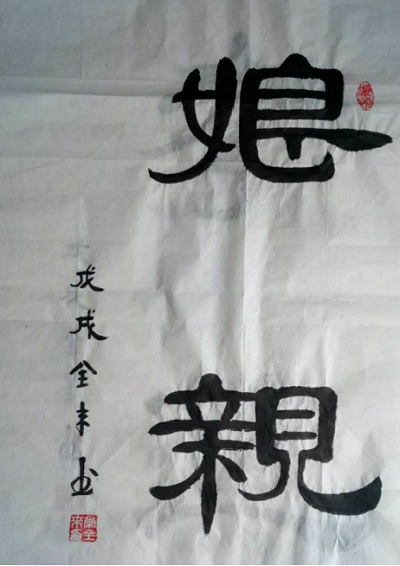 娘親
戊戌全来书